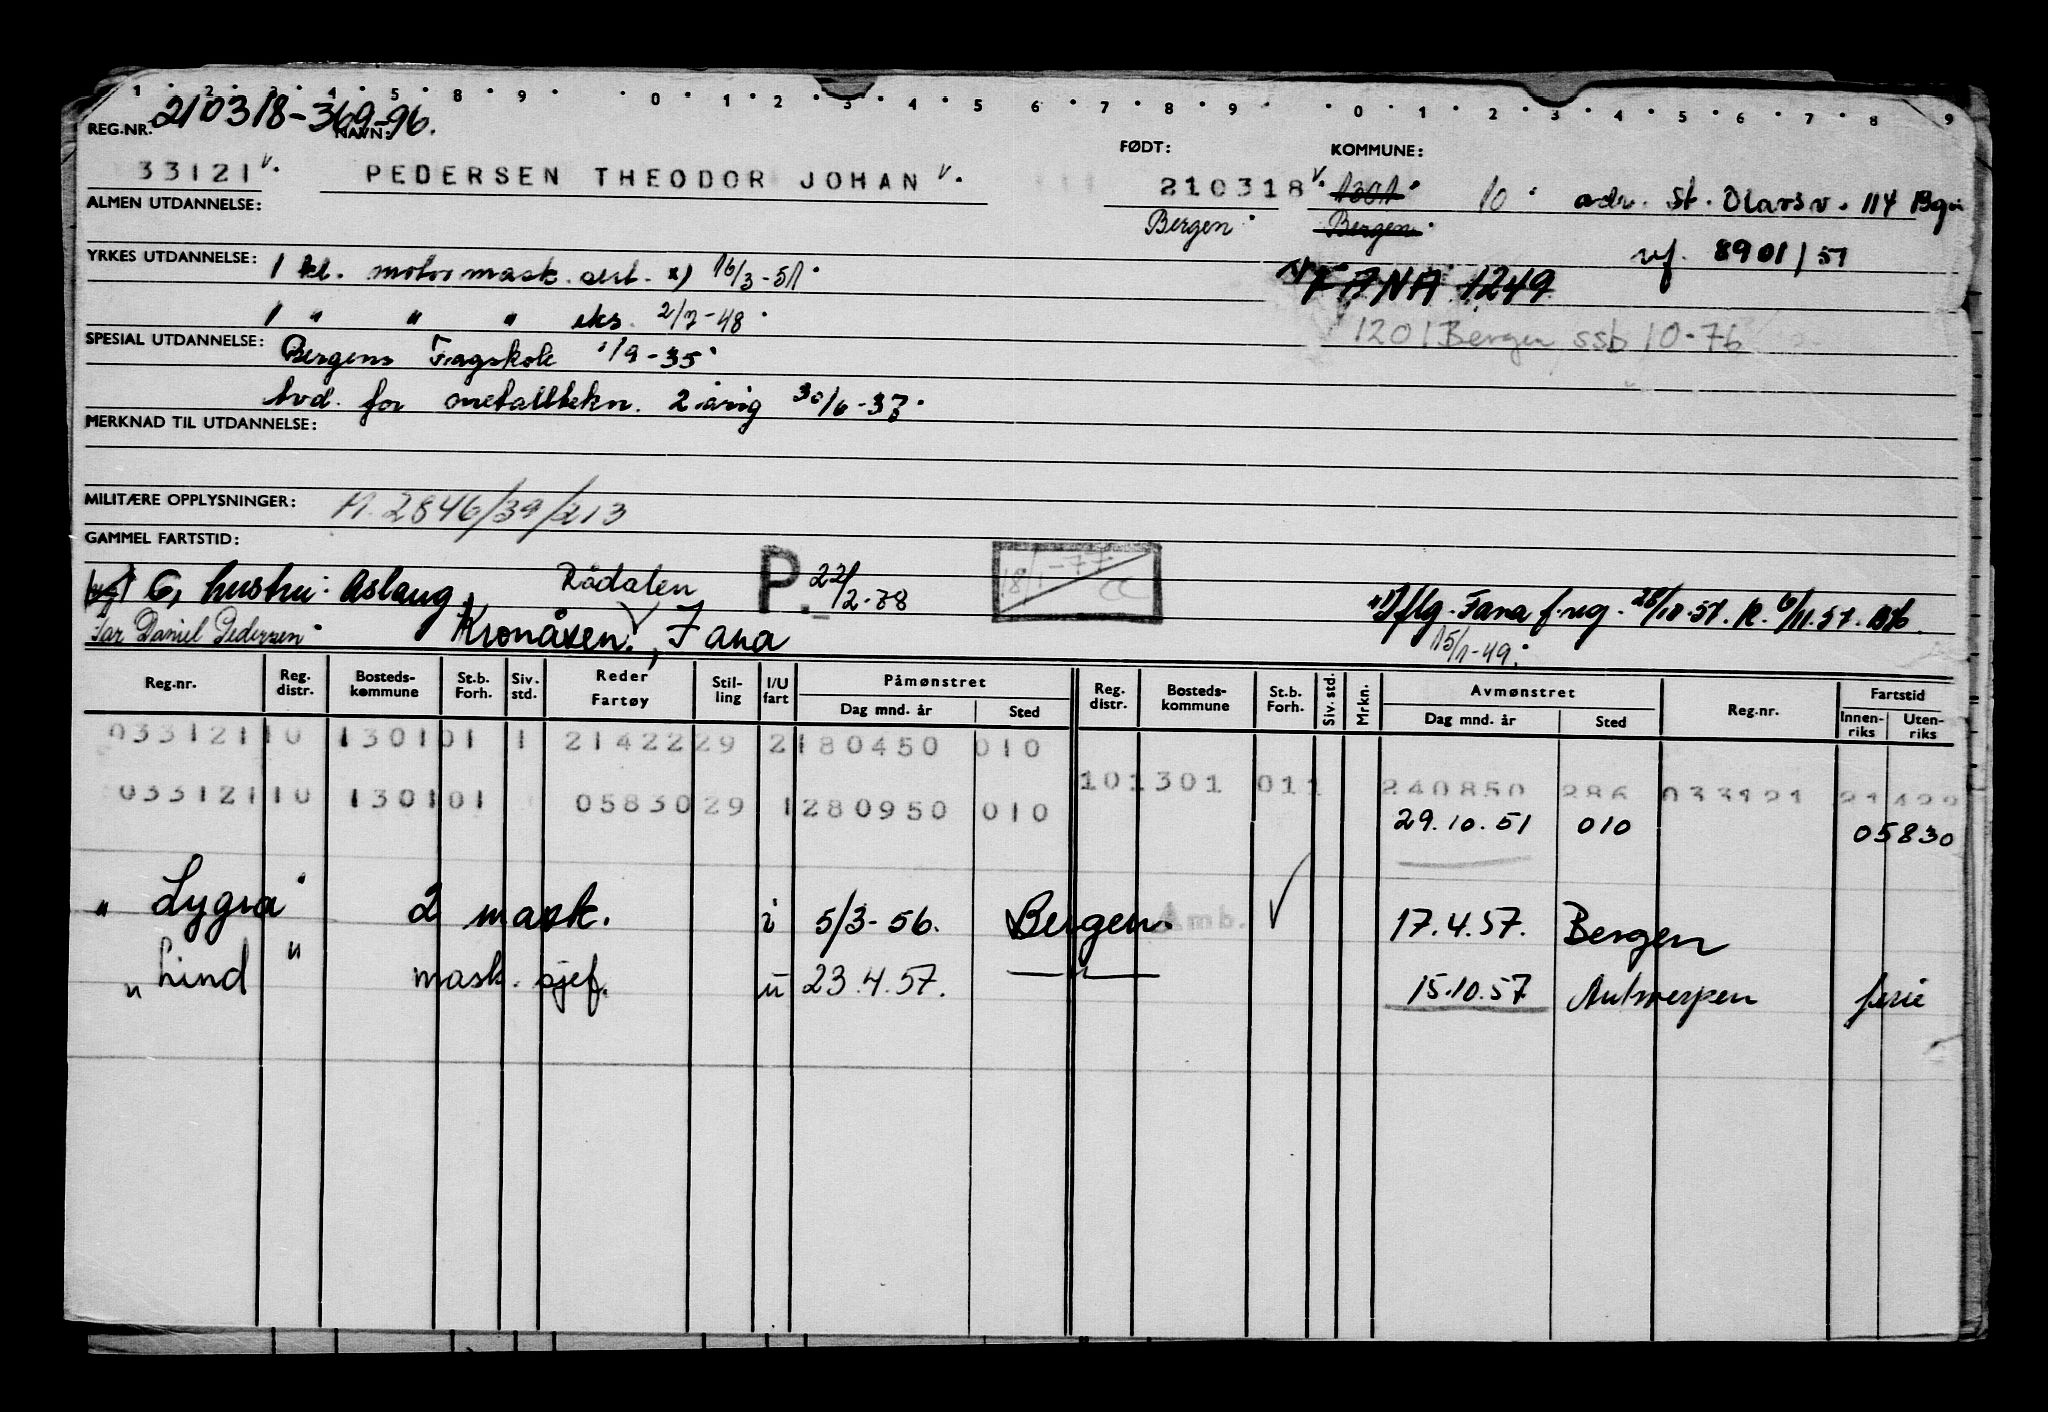 1 2 3 4 5 8 9 0 1 2 3 4 5 6 7 8 9 0 1 2 3 4 5 6 7 8 9
210318-369-96.
REG.NR. NAVN: FØDT: KOMMUNE:
33121 v. PEDERSEN THEODOR JOHAN v. 210318 v. 1301 10 adr. St. Olavsv. 114 Bgn
ALMEN UTDANNELSE: Bergen Bergen
vf. 8901/51
YRKES UTDANNELSE: 1 kl. motormask. sert. x) 16/3-51 FANA 1249
1 " " " eks. 2/7-48
1201 Bergen ssb 10-76
SPESIAL UTDANNELSE: Bergens Fagskole 1/9-35
avd. for metalltekn. 2 årig 30/6-37
MERKNAD TIL UTDANNELSE:
MILITÆRE OPPLYSNINGER: M. 2846/39/213
GAMMEL FARTSTID:
G, hustru: Aslaug, Rådalen P. 22/2-78 18/1-77
Far Daniel Pedersen Kronåsen, Fana flg. Fana f.reg. 28/10-57. R. 6/11.57.
15/1-49
Reg.nr. Reg. distr. Bosteds-kommune St.b. Forh. Siv. std. Reder Fartøy Stil-ling I/U fart Påmønstret Dag mnd. år Sted Reg. distr. Bosteds-kommune St.b. Forh. Siv. std. Mrkn. Avmønstret Dag mnd. år Sted Reg.nr. Fartstid Innen-riks Uten-riks
033121 10 1301 01 1 21422 29 2 180450 010
10 1301 01 1 240850 286 033121 21422
033121 10 1301 01 05830 29 1 280950 010
29.10.51 010 05830
" Lygra " 2 mask. i 5/3-56. Bergen. Amb. ✓ 17.4.57. Bergen
" Lind " mask. sjef. u 23.4.57. —"— 15.10.57 Antwerpen ferie